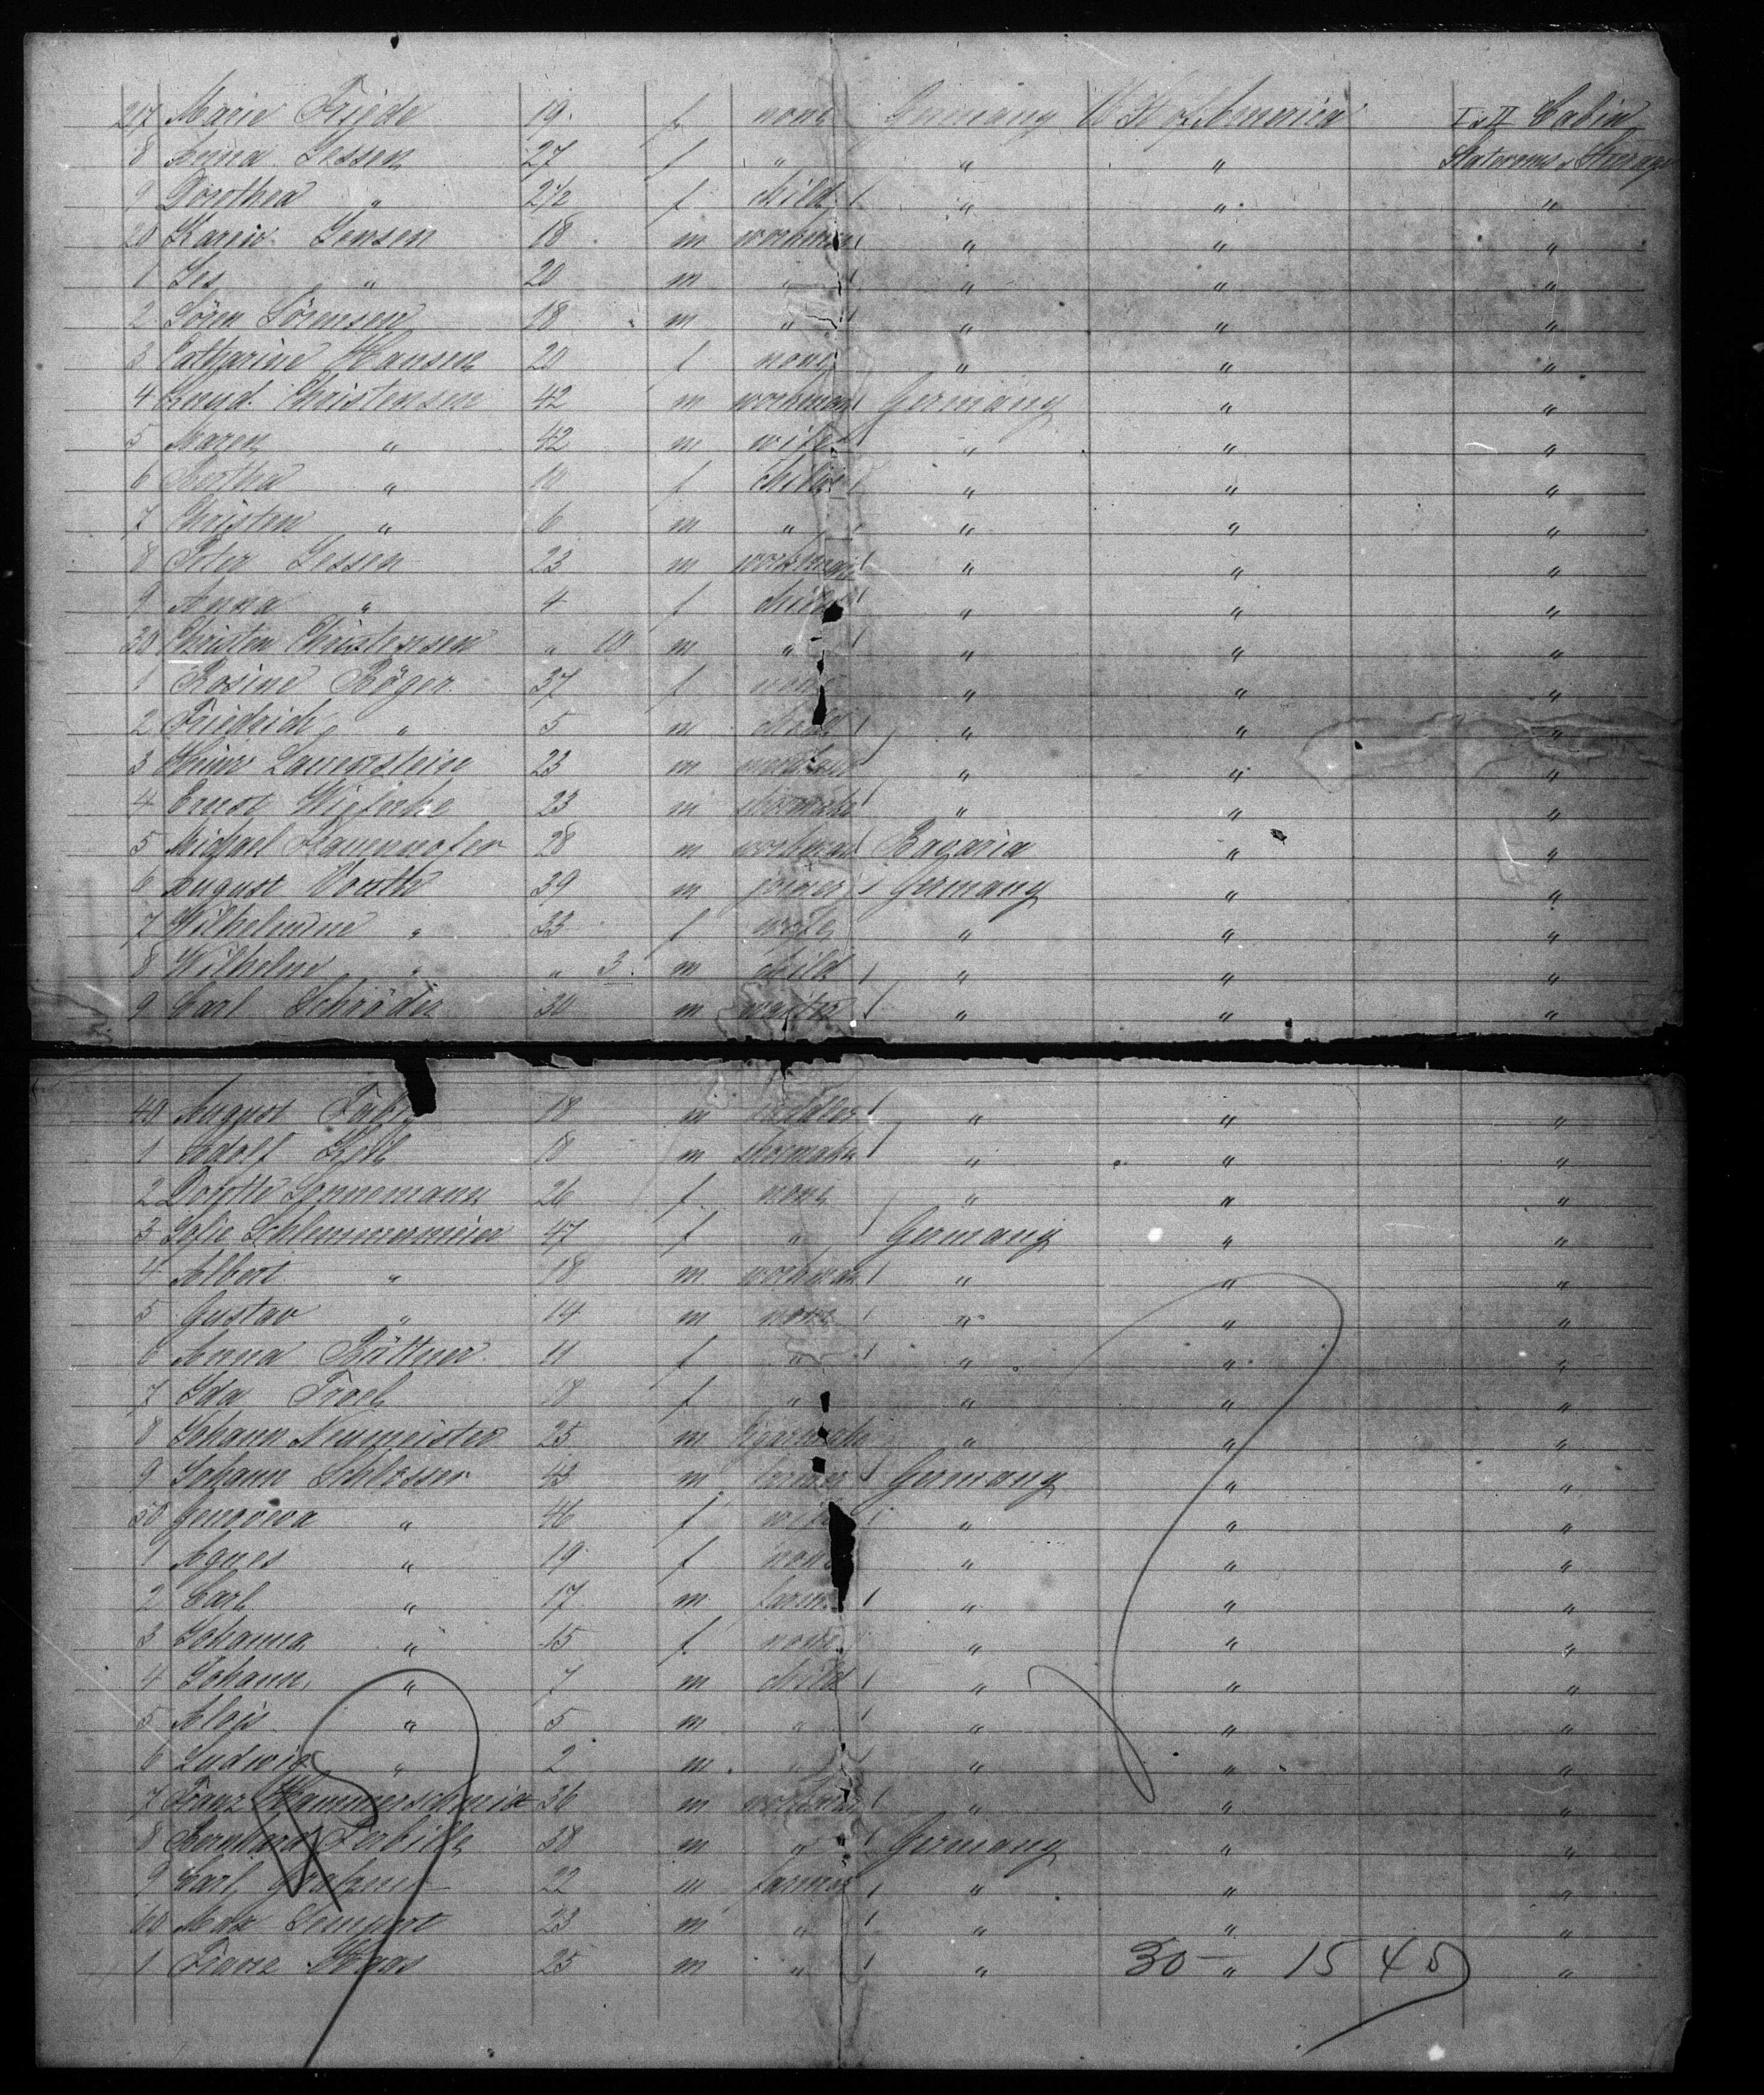 217 Marie Friede 19 f none Germany U St of America I & II Cabin
8 Anna Jessen 27 f " " " Staterooms & Steerage
9 Dorothea " 2 1/2 f child " " "
20 Jensen 18 m workman " " "
1 Jes " 20 m " " " "
2 Sören Sörensen 18 m " " " "
3 Catharine Hansen 20 f none " " "
4 Knud Christensen 42 m workman Germany " "
5 Maren " 42 m wife " " "
6 " 10 f child " " "
7 Christen " 6 m " " " "
8 Peter Jessen 23 m workman " " "
9 Anna " 4 f child " " "
30 Christen Christensen " 10 m " " " "
1 Rosine Röger 37 f none " " "
2 Friedrich " 5 m child " " "
3 Heinr Lauenstein 23 m workman " " "
4 Ernst 23 m shoemaker " " "
5 Michael 28 m workman Bavaria " "
6 August 39 m joiner Germany " "
7 Wilhelmine " 33 f wife " " "
8 Wilhelm " " 3 m child " " "
9 Carl Schröder 30 m waiter " " "
40 August 18 m " " "
1 Adolf Keil 18 m shoemaker " " "
2 Sonnemann 26 f none " " "
3 Sofie Schlemmermeier 47 f " Germany " "
4 Albert " 18 m workman " " "
5 Gustav " 14 m none " " "
6 Anna Büttner 11 f " " " "
7 Ida 18 f " " " "
8 Johann Neumeister 25 m " " "
9 Johann Schlosser 43 m farmer Germany " "
50 Genoveva " 46 f wife " " "
1 Agnes " 19 f none " " "
2 Carl " 17 m farmer " " "
3 Johanna " 15 f none " " "
4 Johann " 7 m child " " "
5 Alois " 5 m " " " "
6 Ludwig " 2 m " " " "
7 Franz Hammerschmid 36 m workman " " "
8 Bernhard 38 m " Germany " "
9 Carl 22 m farmer " " "
60 Max 23 m " " " "
1 Franz Haas 25 m " " 30 — " 15 45 "